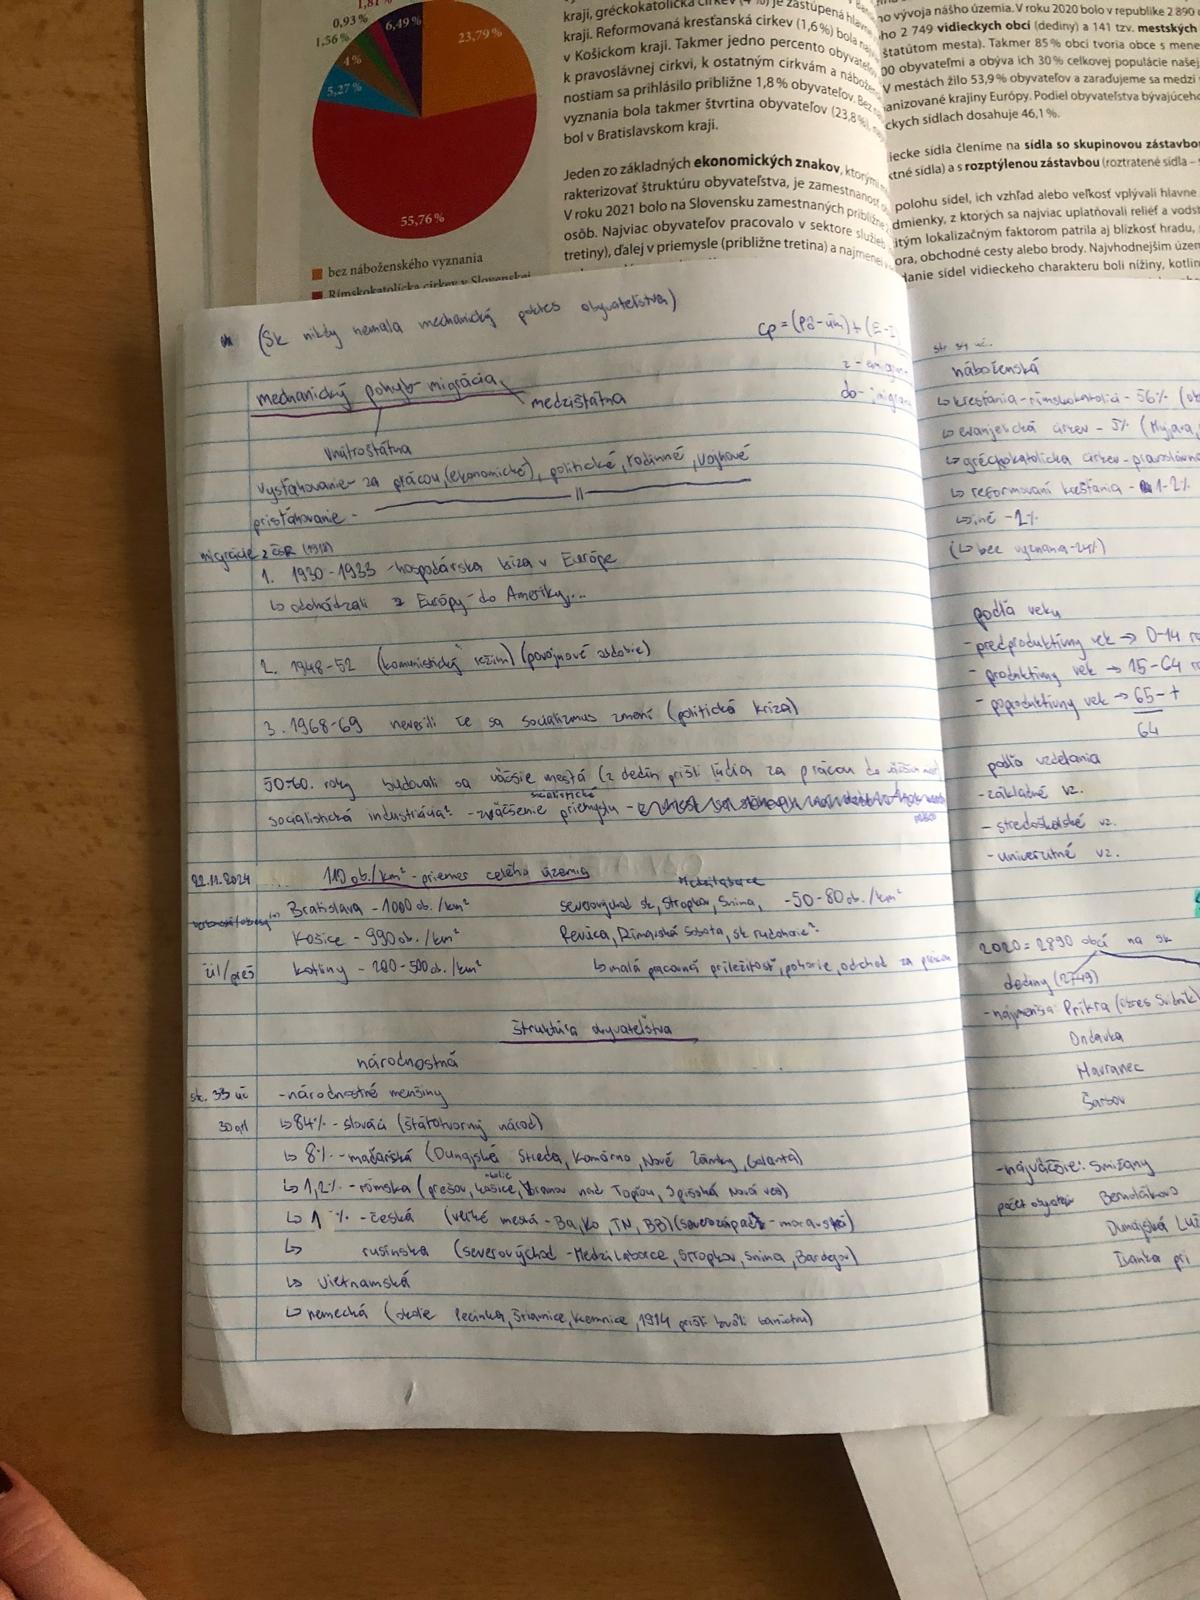 1,81%
0,93 %
6,49 %
23,79 %
1,56 %
4 %
5,27 %
55,76 %
bez náboženského vyznania
Rímskokatolícka cirkev v Slovenskej
kraji, gréckokatolícka cirkev (4 %) je zastúpená
kraji. Reformovaná kresťanská cirkev (1,6 %) bola
v Košickom kraji. Takmer jedno percento obyvateľov
k pravoslávnej cirkvi, k ostatným cirkvám a
nostiam sa prihlásilo približne 1,8 % obyvateľov. Bez
vyznania bola takmer štvrtina obyvateľov (23,8 %),
bol v Bratislavskom kraji.
Jeden zo základných ekonomických znakov, ktorými
rakterizovať štruktúru obyvateľstva, je zamestnanosť
V roku 2021 bolo na Slovensku zamestnaných približne
osôb. Najviac obyvateľov pracovalo v sektore služieb
tretiny), ďalej v priemysle (približne tretina) a najmenej
no vývoja nášho územia. V roku 2020 bolo v republike 2 890
ho 2 749 vidieckych obcí (dediny) a 141 tzv. mestských
štatútom mesta). Takmer 85 % obcí tvoria obce s mene
00 obyvateľmi a obýva ich 30 % celkovej populácie našej
V mestách žilo 53,9 % obyvateľov a zaraďujeme sa medzi
anizované krajiny Európy. Podiel obyvateľstva bývajúceho
ckych sídlach dosahuje 46,1 %.
iecke sídla členíme na sídla so skupinovou zástavbou
ktné sídla) a s rozptýlenou zástavbou (roztratené sídla –
polohu sídel, ich vzhľad alebo veľkosť vplývali hlavne
dmienky, z ktorých sa najviac uplatňovali reliéf a vodst
itým lokalizačným faktorom patrila aj blízkosť hradu,
ora, obchodné cesty alebo brody. Najvhodnejším územ
danie sídel vidieckeho charakteru boli nížiny, kotlin
(Sk nikdy nemala mechanický pokles obyvateľstva)
CP = (PÔ-úm) + (E-I)
z - emigra
do - imigra
mechanický pohyb-migrácia
medzištátna
vnútroštátna
vysťahovanie - za prácou, (ekonomické), politické, rodinné, vojnové
prisťahovanie - — II —
migrácie z ČSR (1918)
1. 1930-1933 - hospodárska kríza v Európe
↳ odchádzali z Európy do Ameriky,...
2. 1948-52 (komunistický režim) (povojnové obdobie)
3. 1968-69 neverili že sa socializmus zmení (politická kríza)
50-60. roky budovali sa väčšie mestá (z dedín prišli ľudia za prácou do väčších miest
socialistické
socialistická industriácia: - zväčšenie priemyslu -
22.11.2024 110 ob./km² - priemer celého územia
Bratislava - 1000 ob./km²
Košice - 990 ob./km²
kotliny - 200-500 ob./km²
Medzilaborce
severovýchod sk, Stropkov, Snina, - 50-80 ob./km²
Revúca, Rimavská Sobota, sk rudohorie:
↳ malá pracovná príležitosť, pohorie, odchod za prácou
štruktúra obyvateľstva
národnostná
str. 33 uč - národnostné menšiny
↳ 84% - slováci (štátotvorný národ)
↳ 8% - maďarská (Dunajská Streda, Komárno, Nové Zámky, Galanta)
↳ 1,2% - rómska (prešov, košice, okolie Vranov nad Topľou, Spišská Nová ves)
↳ 1 % - česká (veľké mestá - Ba, Ko, TN, BB) (severozápad - moravská)
↳ rusínska (severovýchod - Medzilaborce, Stropkov, Snina, Bardejov)
↳ Vietnamská
↳ nemecká (okolie
náboženská
↳ kresťania - rímskokatolíci - 56%
↳ evanjelická cirkev - 5% (Myjava,
↳ gréckokatolícka cirkev - pravoslávna
↳ reformovaní kresťania - 1-2%
↳ iné - 2%
(↳ bez vyznania - 24%)
podľa veku
- predproduktívny vek → 0-14 ro
- produktívny vek → 15-64 ro
- poproduktívny vek → 65- +
64
podľa vzdelania
- základné vz.
- stredoškolské vz.
- univerzitné vz.
2020 = 2890 obcí na sk
dediny (2749)
- najmenšia Príkra (okres Svidník)
Ondavka
Havranec
Šarbov
- najväčšie: Smižany
počet obyvateľov Bernolákovo
Dunajská Luž
Ivanka pri